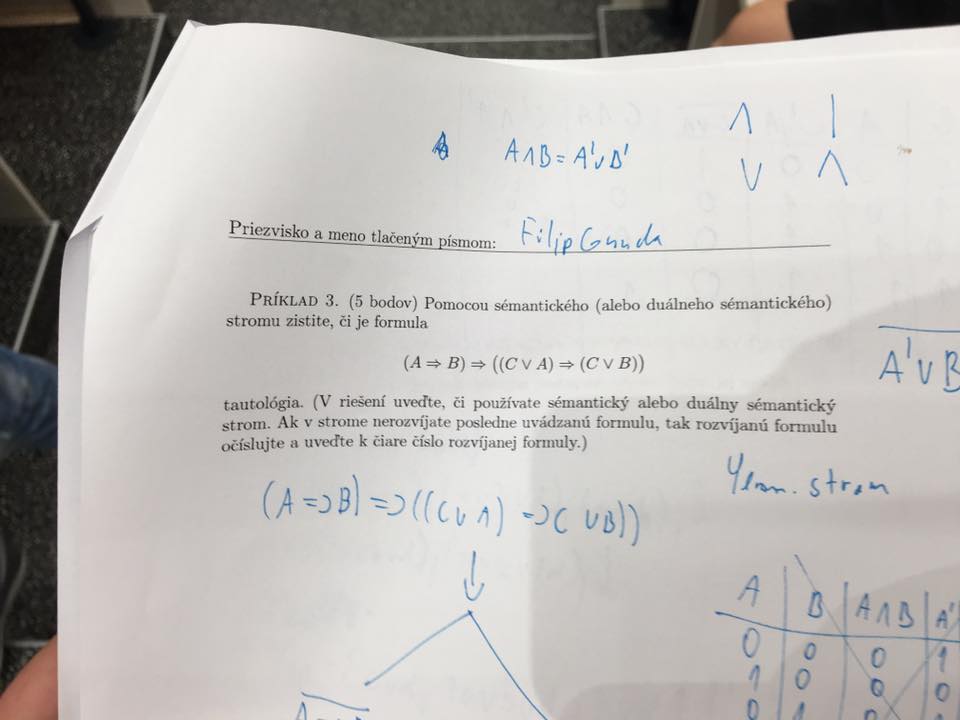 A∧B = A'∨B'
∧ |
∨ ∧
Priezvisko a meno tlačeným písmom: Filip Gunda
PRÍKLAD 3. (5 bodov) Pomocou sémantického (alebo duálneho sémantického)
stromu zistite, či je formula
(A ⇒ B) ⇒ ((C ∨ A) ⇒ (C ∨ B))
A'∨B
tautológia. (V riešení uveďte, či používate sémantický alebo duálny sémantický
strom. Ak v strome nerozvíjate posledne uvádzanú formulu, tak rozvíjanú formulu
očíslujte a uveďte k čiare číslo rozvíjanej formuly.)
strom
(A => B) => ((C ∨ A) => C ∨ B))
A B A∧B A'
0 0 0 1
1 0 0 0
0 1